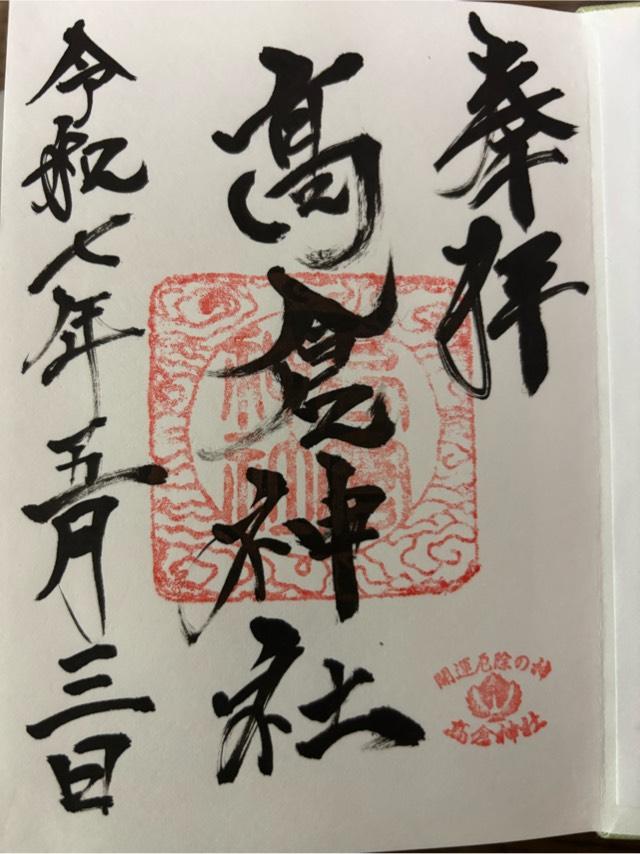 奉拝
高倉神社
令和七年五月三日
開運厄除の神
高倉神社